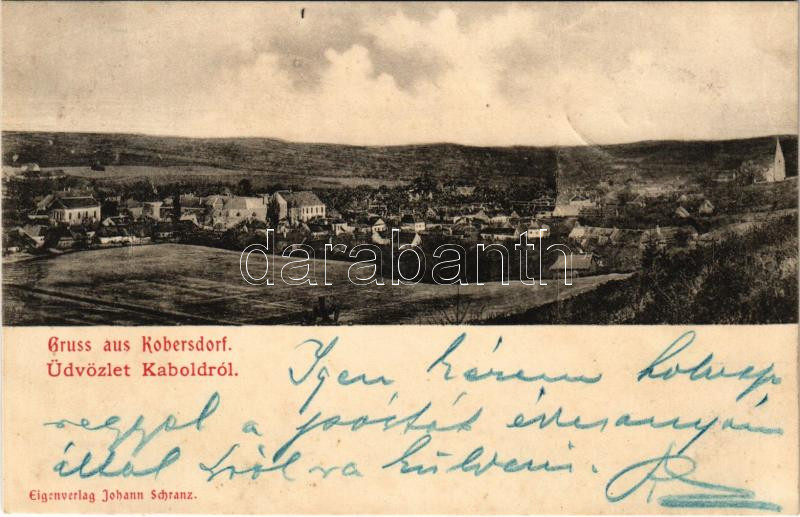 darabanth
Gruss aus Kobersdorf.
Üdvözlet Kaboldról.
Igen kérem holnap
reggel a postát édesanyám
által
küldeni.
Eigenverlag Johann Schranz.